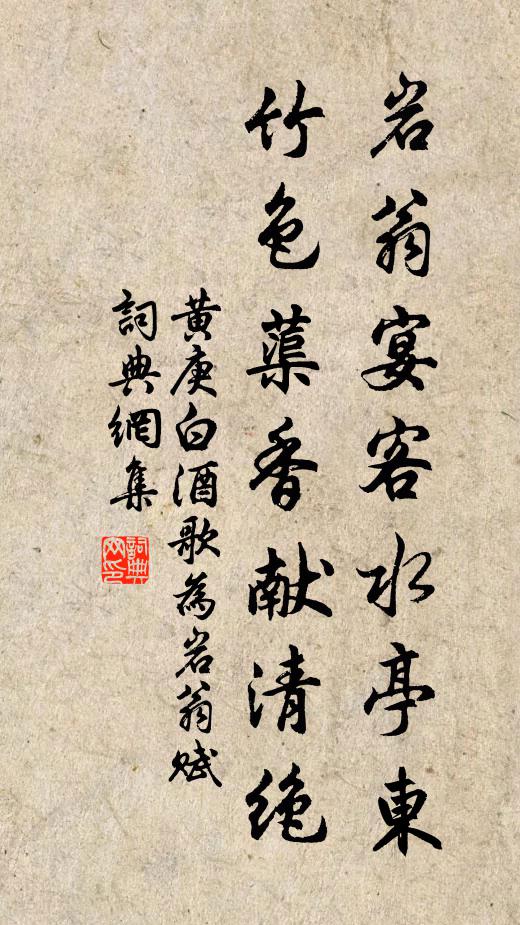 岩翁宴客水亭東
竹色蕖香献清絶
黄庚白酒歌為岩翁賦
詞典網集
詞典网印